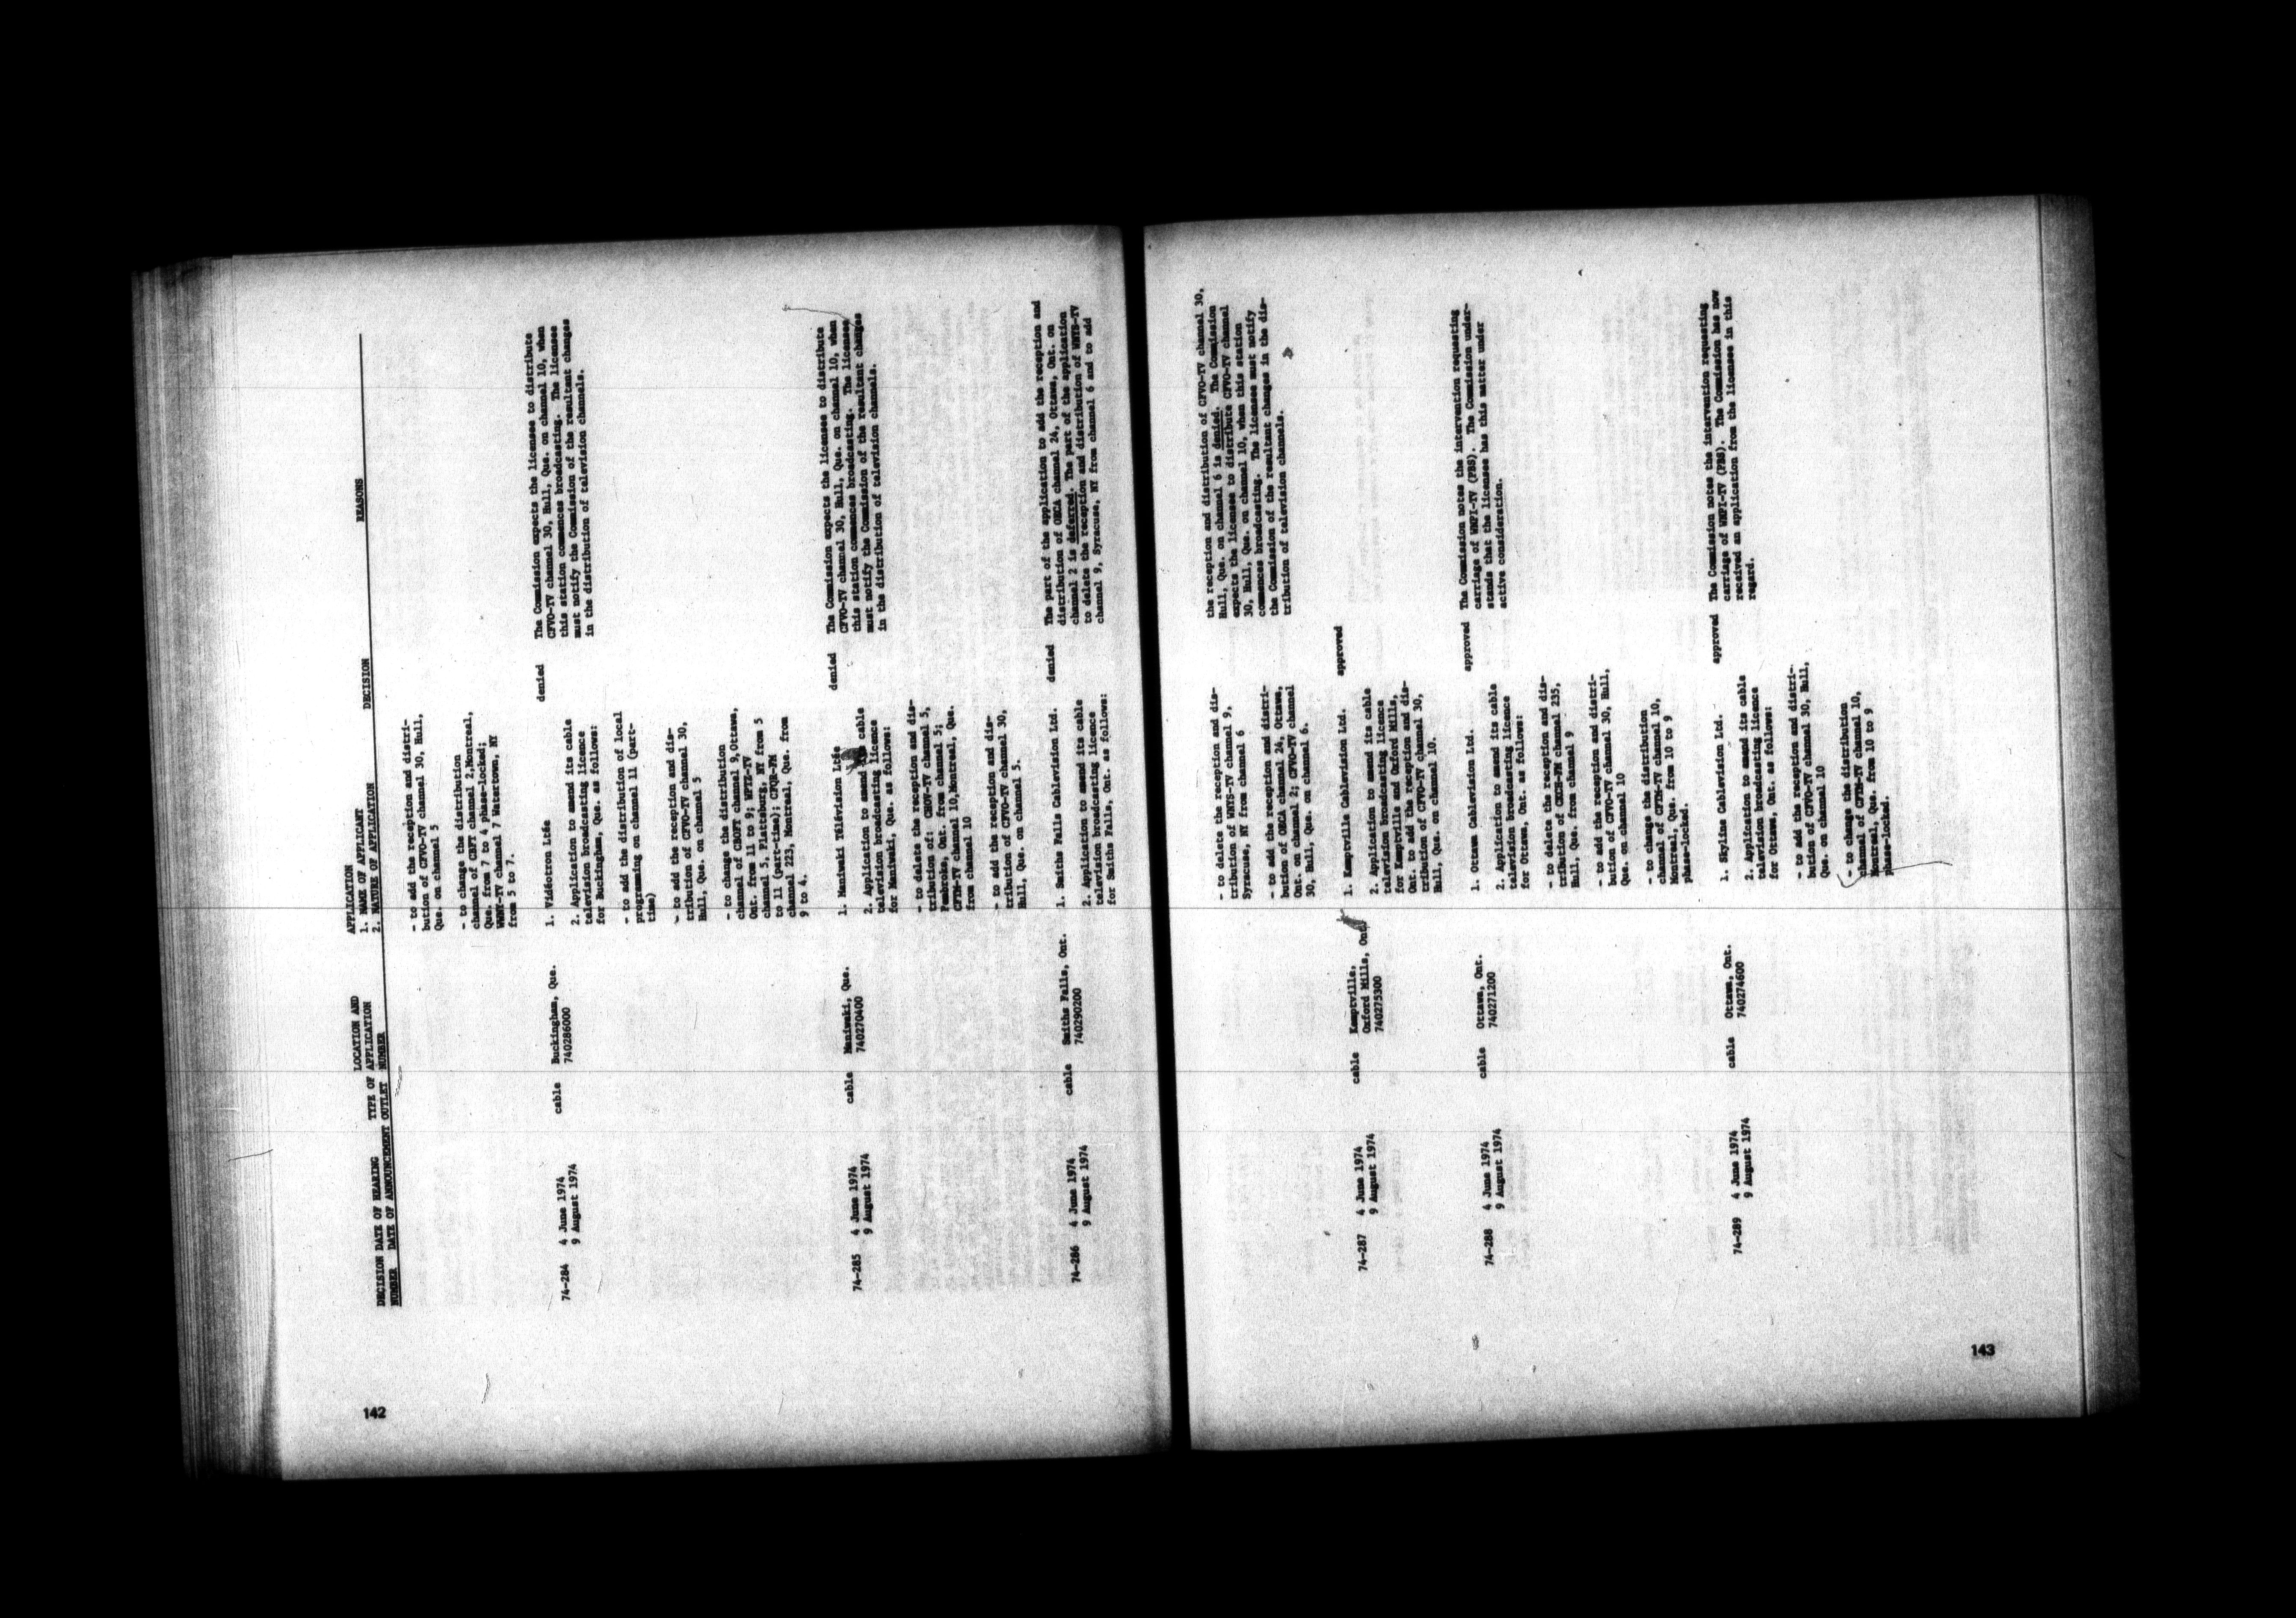 APPLICATION
DECISION DATE OF HEARING TYPE OF LOCATION AND 1. NAME OF APPLICANT DECISION REASONS
NUMBER DATE OF ANNOUNCEMENT OUTLET APPLICATION NUMBER 2. NATURE OF APPLICATION
- to add the reception and distri-
bution of CFVO-TV channel 30, Hull,
Que. on channel 5
- to change the distribution
channel of CBFT channel 2,Montreal,
Que. from 7 to 4 phase-locked;
WWNY-TV channel 7 Watertown, NY
from 5 to 7.
74-284 4 June 1974
9 August 1974
cable
Buckingham, Que.
740286000
1. Vidéotron Ltée
2. Application to amend its cable
television broadcasting licence
for Buckingham, Que. as follows:
- to add the distribution of local
programming on channel 11 (part-
time)
- to add the reception and dis-
tribution of CFVO-TV channel 30,
Hull, Que. on channel 5
- to change the distribution
channel of CBOFT channel 9,Ottawa,
Ont. from 11 to 9; WPTZ-TV
channel 5, Plattsburg, NY from 5
to 11 (part-time); CFQR-FM
channel 223, Montreal, Que. from
9 to 4.
denied
The Commission expects the licensee to distribute
CFVO-TV channel 30, Hull, Que. on channel 10, when
this station commences broadcasting. The licensee
must notify the Commission of the resultant changes
in the distribution of television channels.
74-285 4 June 1974
9 August 1974
cable
Maniwaki, Que.
740270400
1. Maniwaki Télévision Ltée
2. Application to amend its cable
television broadcasting licence
for Maniwaki, Que. as follows:
- to delete the reception and dis-
tribution of: CHOV-TV channel 5,
Pembroke, Ont. from channel 5;
CFTM-TV channel 10,Montreal, Que.
from channel 10
- to add the reception and dis-
tribution of CFVO-TV channel 30,
Hull, Que. on channel 5.
denied
The Commission expects the licensee to distribute
CFVO-TV channel 30, Hull, Que. on channel 10, when
this station commences broadcasting. The licensee
must notify the Commission of the resultant changes
in the distribution of television channels.
74-286 4 June 1974
9 August 1974
cable
Smiths Falls, Ont.
740290200
1. Smiths Falls Cablevision Ltd.
2. Application to amend its cable
television broadcasting licence
for Smiths Falls, Ont. as follows:
denied
The part of the application to add the reception and
distribution of OECA channel 24, Ottawa, Ont. on
channel 2 is deferred. The part of the application
to delete the reception and distribution of WNYS-TV
channel 9, Syracuse, NY from channel 6 and to add
142
- to delete the reception and dis-
tribution of WNYS-TV channel 9,
Syracuse, NY from channel 6
- to add the reception and distri-
bution of OECA channel 24, Ottawa,
Ont. on channel 2; CFVO-TV channel
30, Hull, Que. on channel 6.
the reception and distribution of CFVO-TV channel 30,
Hull, Que. on channel 6 is denied. The Commission
expects the licensee to distribute CFVO-TV channel
30, Hull, Que. on channel 10, when this station
commences broadcasting. The licensee must notify
the Commission of the resultant changes in the dis-
tribution of television channels.
74-287 4 June 1974
9 August 1974
cable
Kemptville,
Oxford Mills, Ont.
740275300
1. Kemptville Cablevision Ltd.
2. Application to amend its cable
television broadcasting licence
for Kemptville and Oxford Mills,
Ont. to add the reception and dis-
tribution of CFVO-TV channel 30,
Hull, Que. on channel 10.
approved
74-288 4 June 1974
9 August 1974
cable
Ottawa, Ont.
740271200
1. Ottawa Cablevision Ltd.
2. Application to amend its cable
television broadcasting licence
for Ottawa, Ont. as follows:
- to delete the reception and dis-
tribution of CKCH-FM channel 235,
Hull, Que. from channel 9
- to add the reception and distri-
bution of CFVO-TV channel 30, Hull,
Que. on channel 10
- to change the distribution
channel of CFTM-TV channel 10,
Montreal, Que. from 10 to 9
phase-locked.
approved
The Commission notes the intervention requesting
carriage of WNPI-TV (PBS). The Commission under-
stands that the licensee has this matter under
active consideration.
74-289 4 June 1974
9 August 1974
cable
Ottawa, Ont.
740274600
1. Skyline Cablevision Ltd.
2. Application to amend its cable
television broadcasting licence
for Ottawa, Ont. as follows:
- to add the reception and distri-
bution of CFVO-TV channel 30, Hull,
Que. on channel 10
- to change the distribution
channel of CFTM-TV channel 10,
Montreal, Que. from 10 to 9
phase-locked.
approved
The Commission notes the intervention requesting
carriage of WNPI-TV (PBS). The Commission has now
received an application from the licensee in this
regard.
143